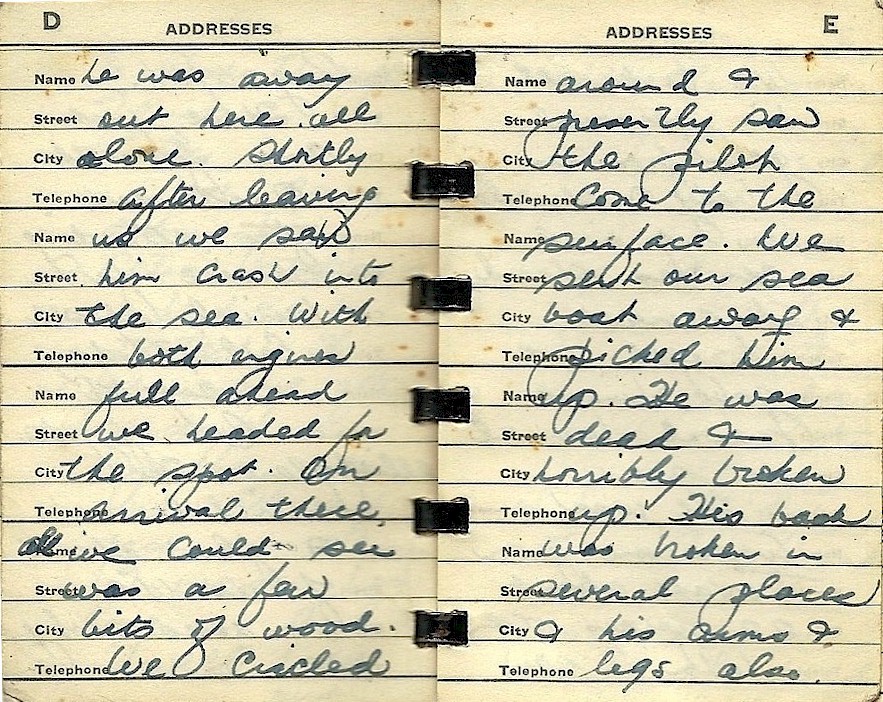 D
ADDRESSES
Name he was away
Street out here all
City alone. Shortly
Telephone after leaving
Name us we saw
Street him crash into
City the sea. With
Telephone both engines
Name full ahead
Street we headed for
City the spot. On
Telephone arrival there
Name all we could see
Street was a few
City bits of wood.
Telephone We circled
E
ADDRESSES
Name around &
Street presently saw
City the pilot
Telephone Come to the
Name surface. We
Street sent our sea
City boat away &
Telephone picked him
Name up. He was
Street dead &
City horribly broken
Telephone up. His back
Name was broken in
Street several places
City & his arms &
Telephone legs also.